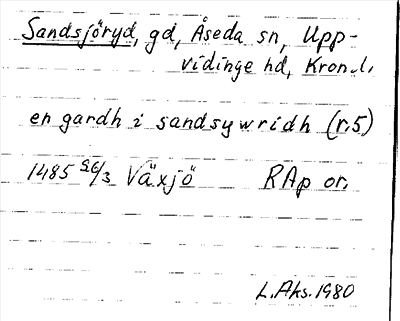 Sandsjöryd, gd, Åseda sn, Upp-
vidinge hd, Kron.l.
en gardh i sandsywridh (r.5)
1485 26/3 Växjö RAp or.
L.Aks. 1980